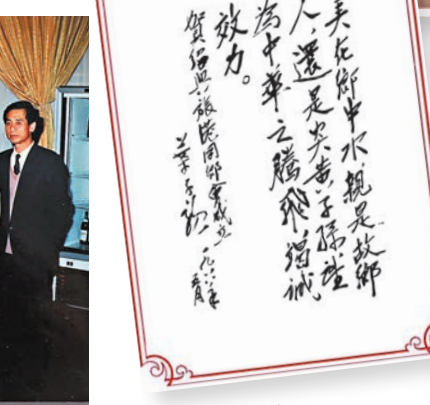 美在鄉中水,親是故鄉
人,還是炎黃子孫
為中華之騰飛竭誠
效力。
賀紹興旅港同鄉會成立